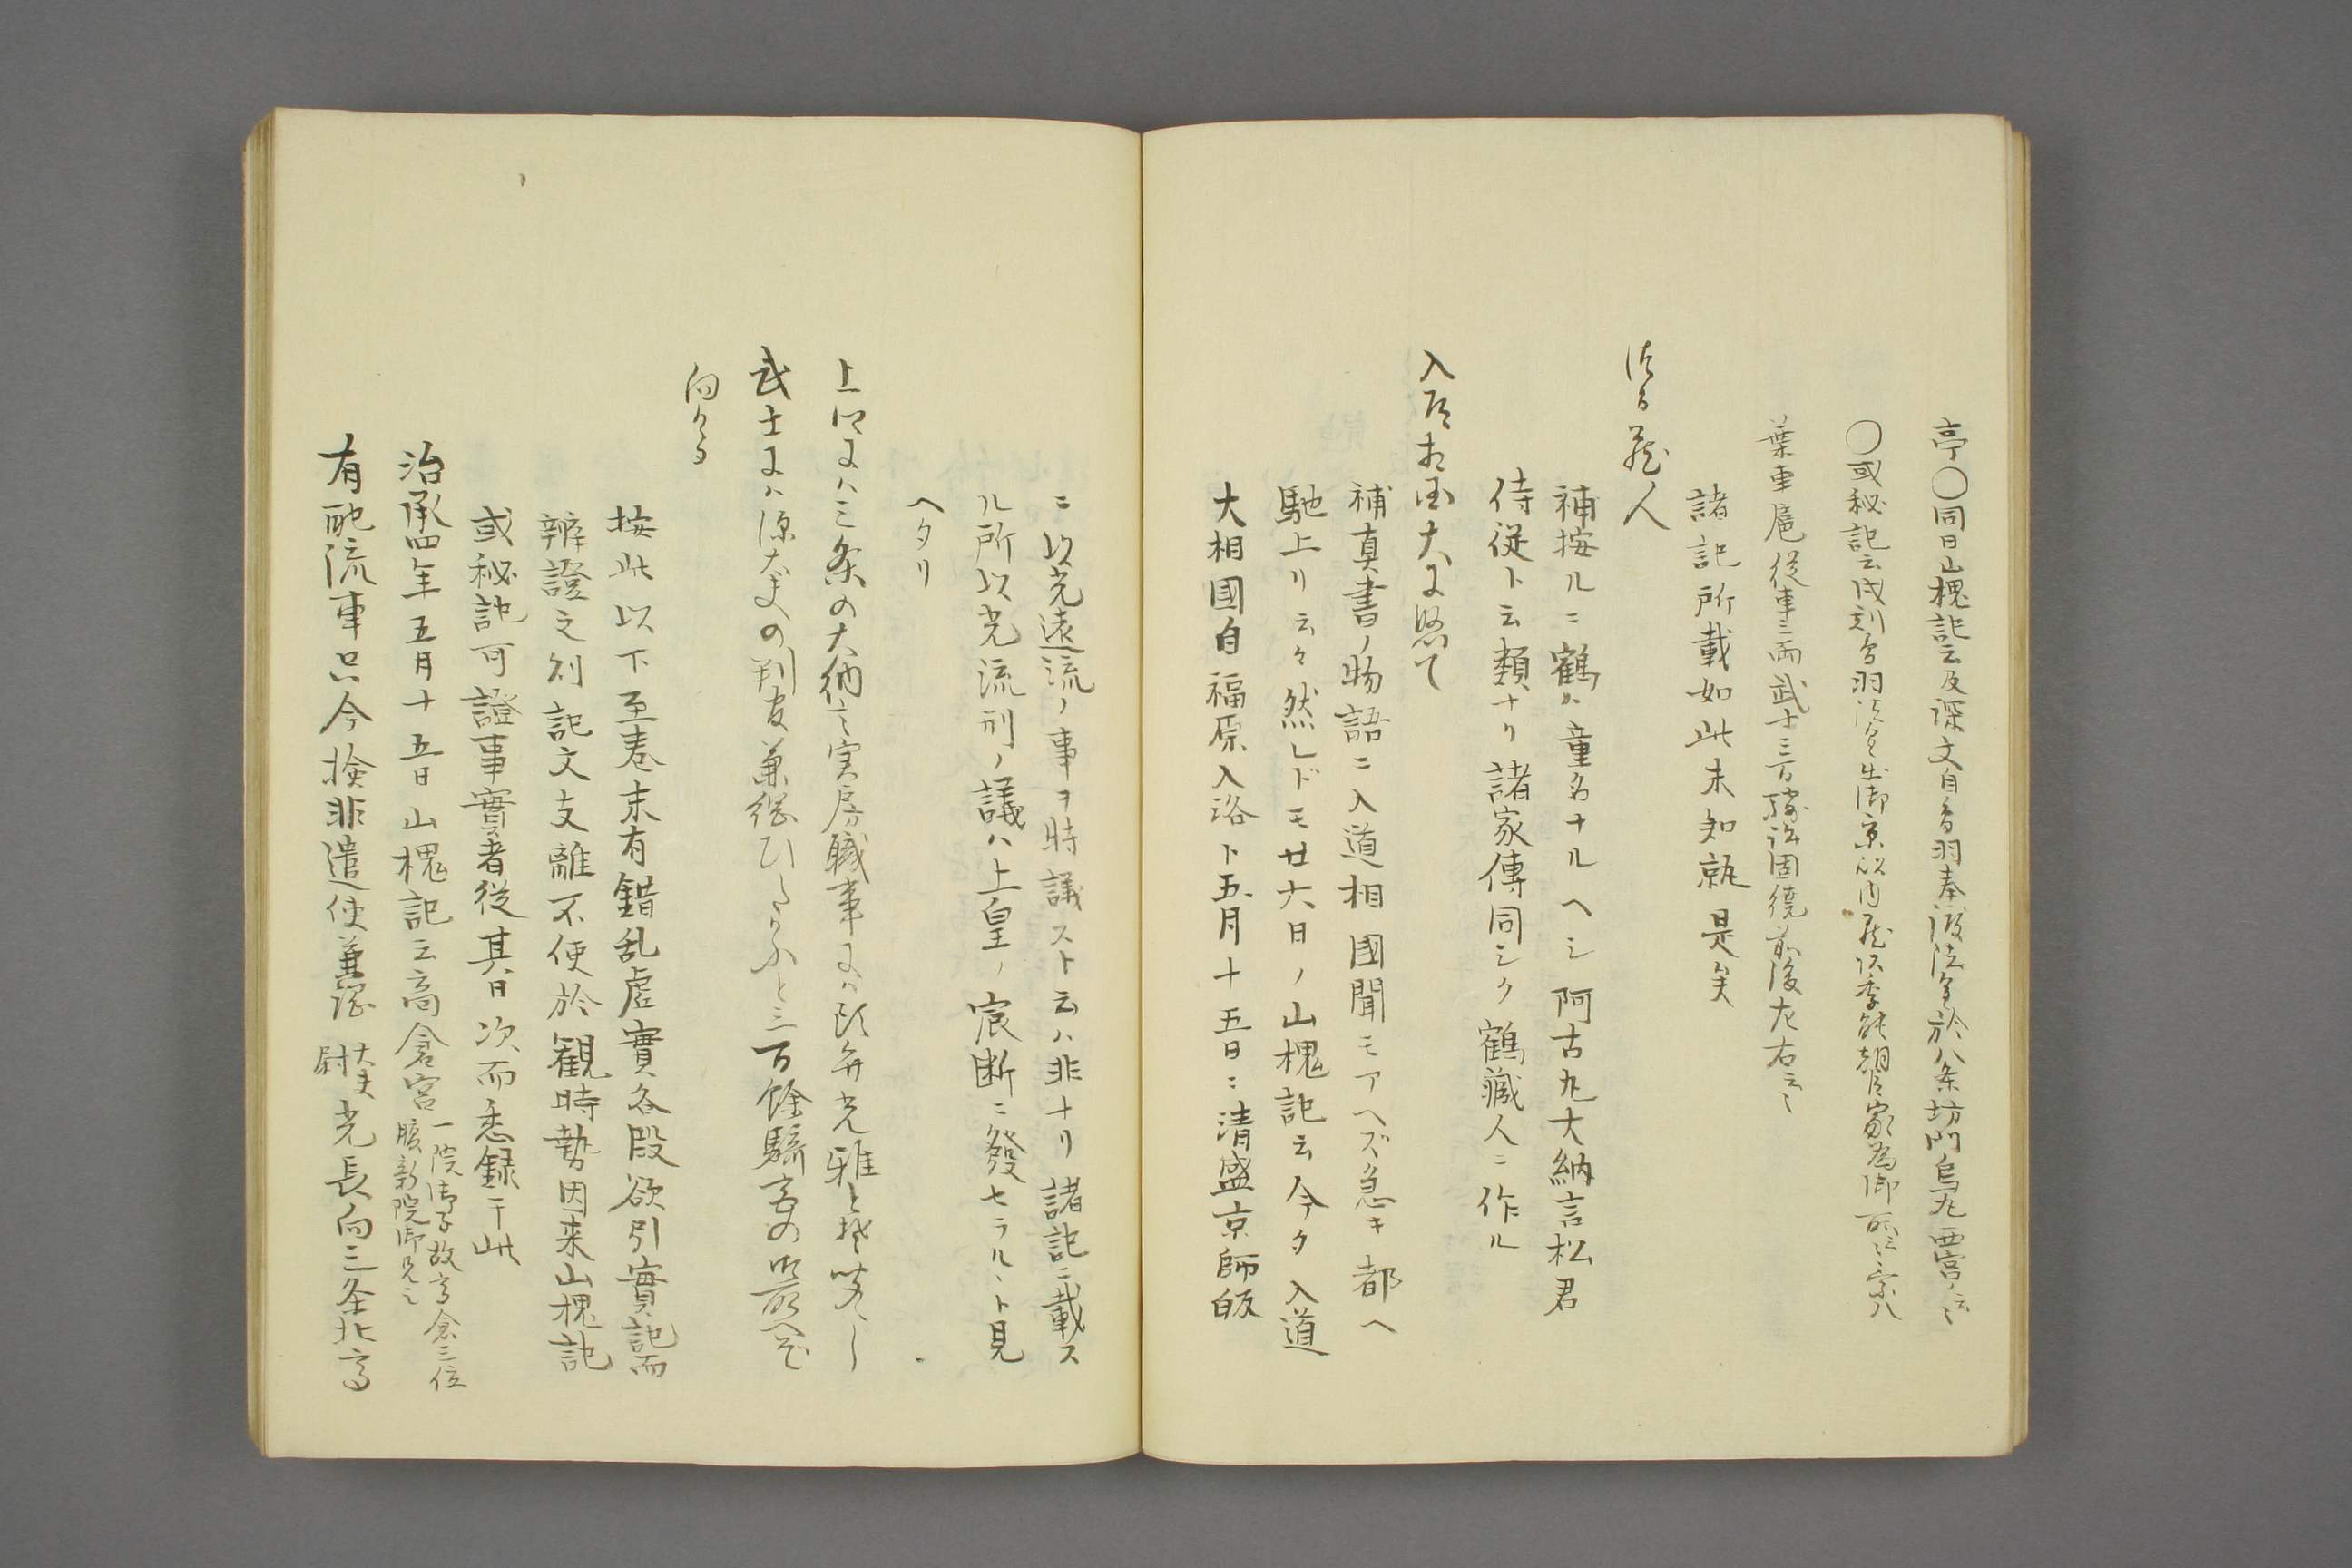 亭〇同日山槐記云及深文自鳥羽奉渡院第於八条坊門烏丸西宮ノ云々
〇或秘記云戌刻鳥羽法皇出御京以内蔵頭季能朝臣家為御所云々京八
葉車庇従車三両武士三百騎許固繞前後左右云々
諸記所載如此未知孰是矣
つる蔵人
補按ルニ鶴ハ童名ナルヘシ阿古丸大納言松君
侍従ト云類ナリ諸家傳同シク鶴藏人ニ作ル
入道相国大に怒て
補真書ノ物語ニ入道相國聞モアヘズ急キ都ヘ
馳上リ云々然レドモ廿六日ノ山槐記云今夕入道
大相國自福原入洛ト五月十五日ニ清盛京師皈
ニ以光遠流ノ事ヲ時議スト云ハ非ナリ諸記ニ載ス
ル所以光流刑ノ議ハ上皇ノ宸断ニ發セラルヽト見
ヘタリ
上卿にハ三条の大納言実房職事にハ頭弁光雅とそ聞えし
武士にハ源大夫の判官兼綱ひきゐ三百餘騎宮の御所へそ
向ける
按此以下至巻末有錯乱虚實各段欲引實記而
辨證之則記文支離不便於観時勢因来山槐記
或秘記可證事實者従其日次而悉録于此
治承四年五月十五日山槐記云高倉宮一院御子故高倉三位腹新院御兄也
有配流事只今検非遣使兼綱大夫尉光長向三条北高